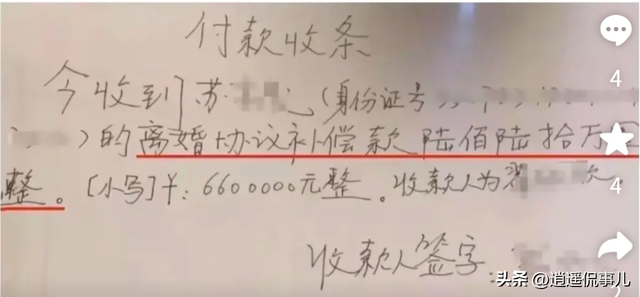 付款收条
今收到苏 (身份证号
)的离婚协议补偿款陆佰陆拾万
整。[小写]¥:6600000元整。收款人为
收款人签字:
4
4
2
头条 @逍遥侃事儿